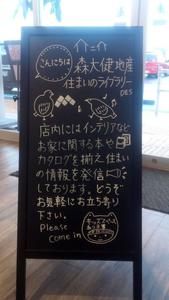 こんにちは
森大健地産
住まいのライブラリー
DES
店内にはインテリアなど
お家に関する本や
カタログを揃え住まい
の情報を発信
しております。どうぞ
お気軽にお立ち寄り
下さい。
Please
come in
キッズスペース
あります